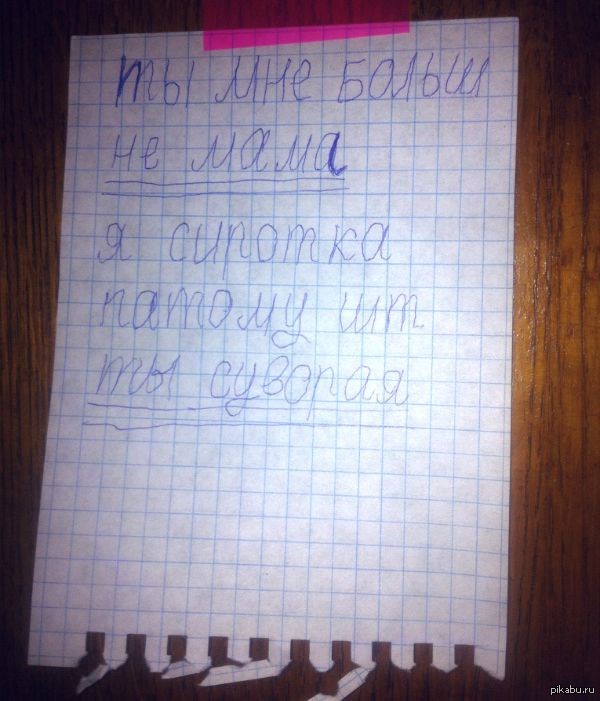 ты мне больш
не мама
я сиротка
патому шт
ты суворая
pikabu.ru